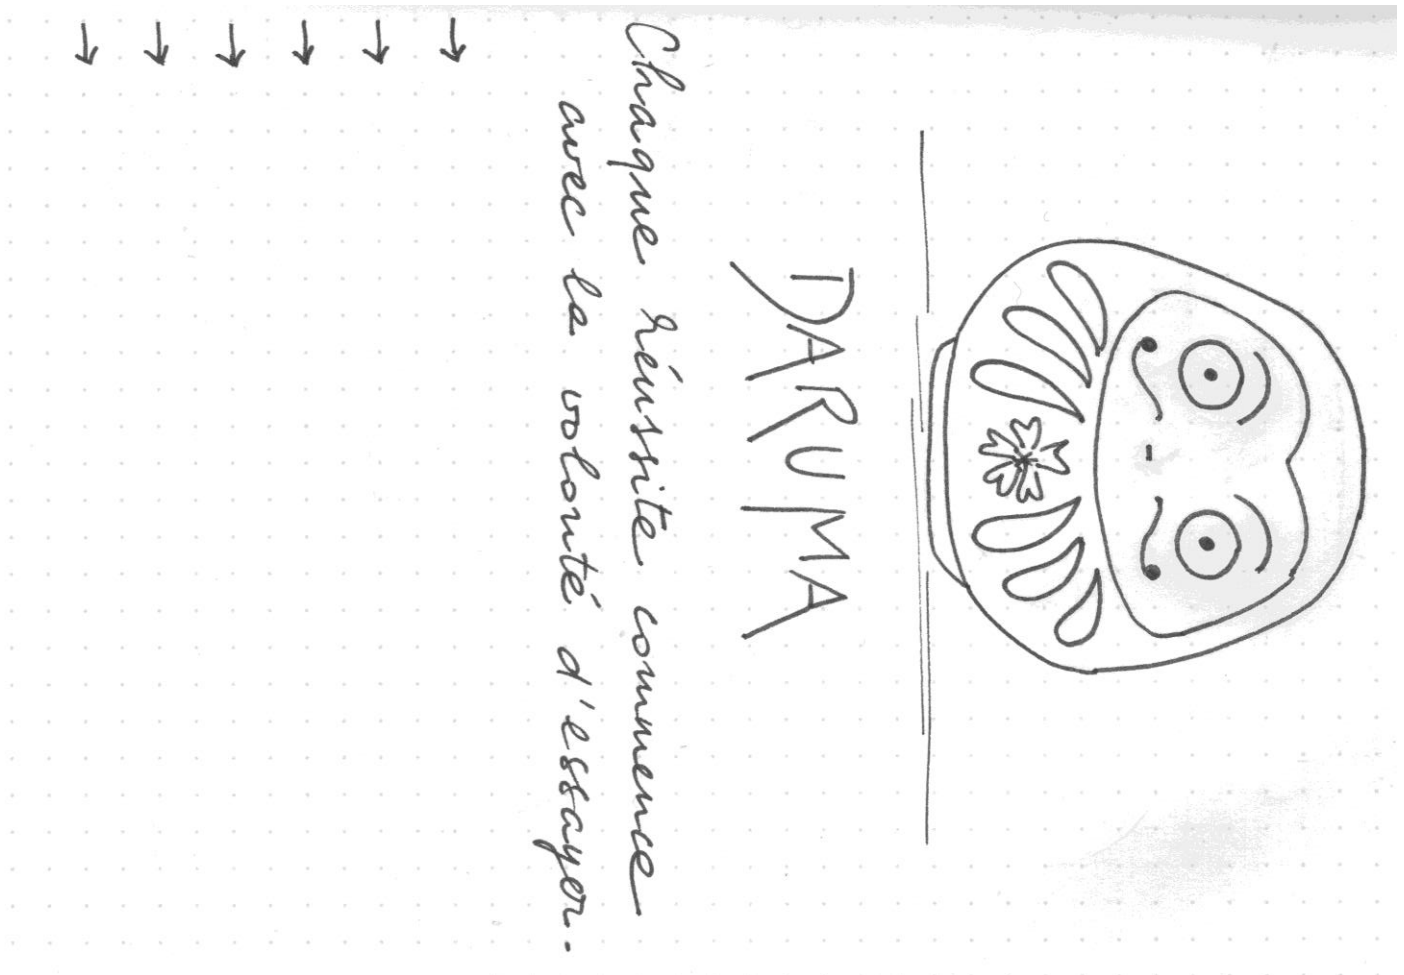 DARUMA
Chaque réussite commence
avec la volonté d'essayer.
→
→
→
→
→
→